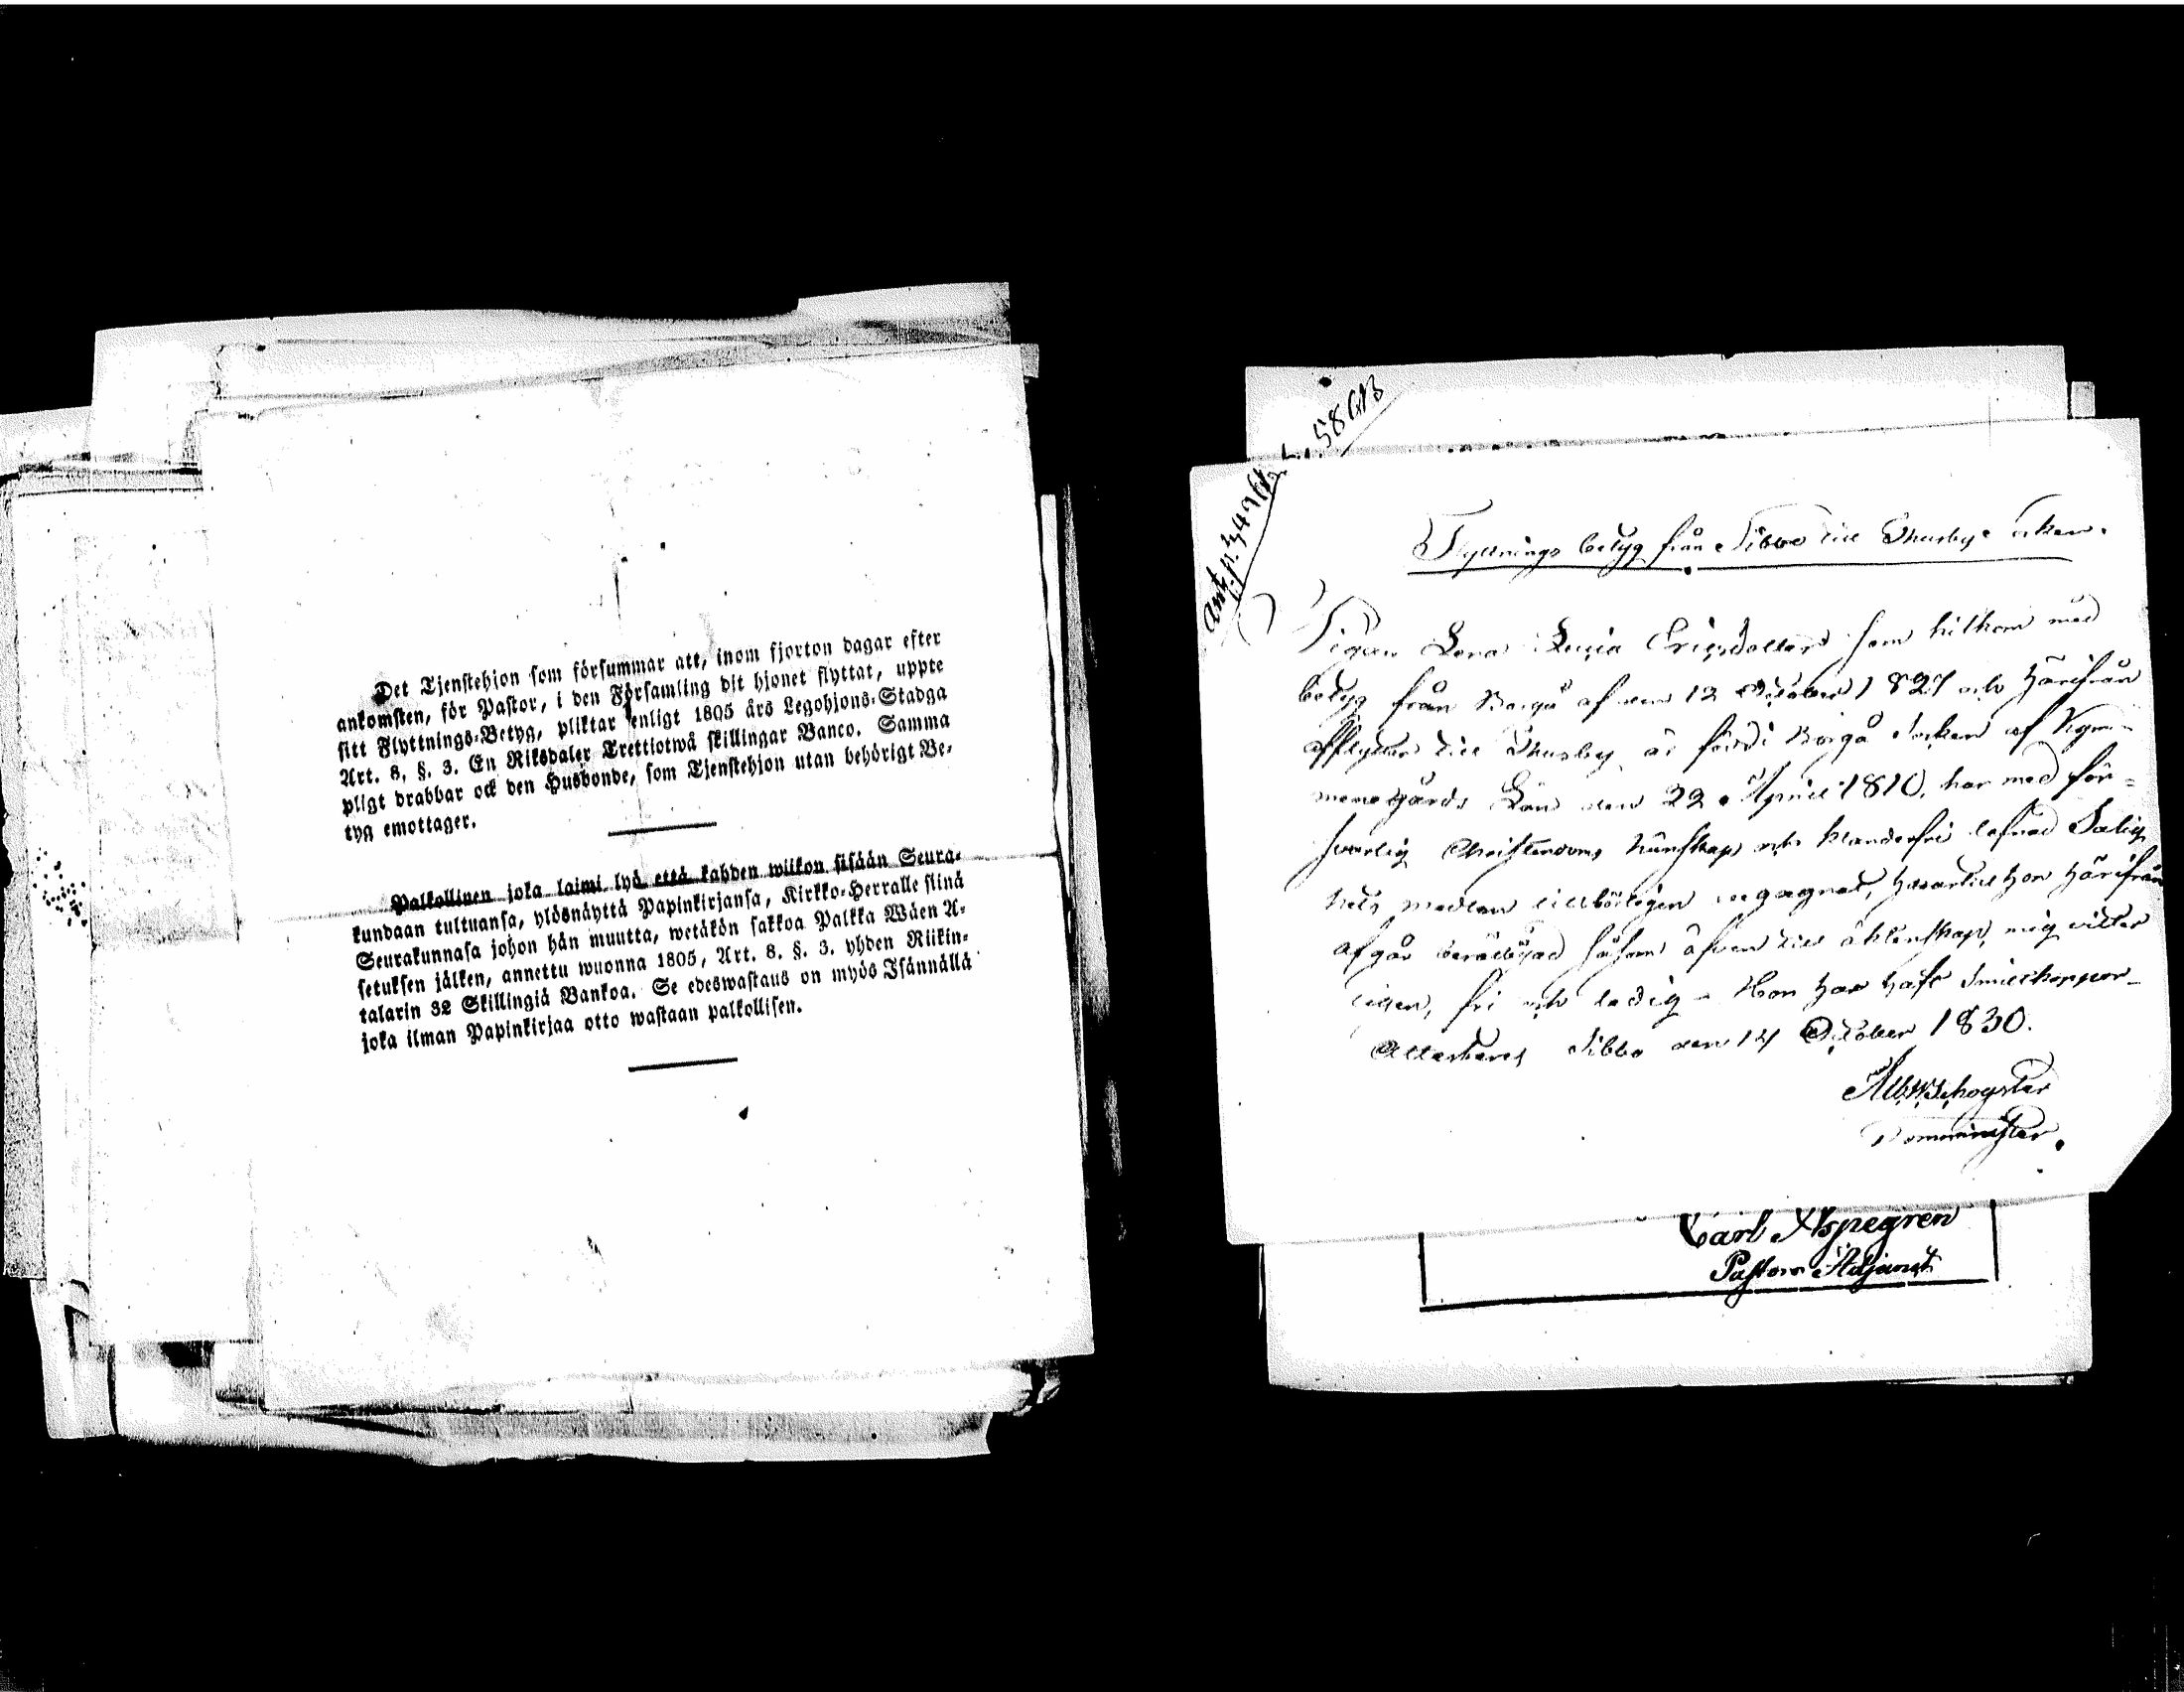 Det Tjenstehjon som försummar att, inom fjorton dagar efter
ankomsten, för Pastor, i den Församling dit hjonet flyttat, uppte
sitt Flyttnings-Betyg, pliktar enligt 1805 års Legohjons-Stadga
Art. 8, §. 3. En Riksdaler Trettiotwå skillingar Banco. Samma
pligt drabbar ock den Husbonde, som Tjenstehjon utan behörigt Be-
tyg emottager.
Palkollinen joka laimi lyö että kahden wiikon sisään Seura-
kundaan tultuansa, ylösnäyttä Papinkirjansa, Kirkko-Herralle siinä
Seurakunnasa johon hän muutta, wetäkön sakkoa Palkka Wäen A-
setuksen jälken, annettu wuonna 1805, Art. 8. §. 3. yhden Riikin-
talarin 32 Skillingiä Bankoa. Se edeswastaus on myös Isännällä
joka ilman Papinkirjaa otto wastaan palkollisen.
58
Flyttnings betyg från Sibbo till Thusby
Pigan Lena Lovisa Ericsdotter som hitkom med
betyg från Borgå af den 12 October 1827 och härifrån
afflyttar till Thusby är född i Borgå Socken af Kym-
menegårds Län den 22 April 1810, har med för-
svarlig Christendoms kunskap och klanderfri lefnad Salig-
hets medlen tillbörligen begagnat, hvartill hon härifrån
afgår berättigad såsom äfven till äktenskap, mig vitter-
ligen, fri och ledig - Hon har haft Smittkoppor-
Attesterar Sibbo den 14 October 1830.
Comminister.
Carl Aspegren
Pastors Adjunct